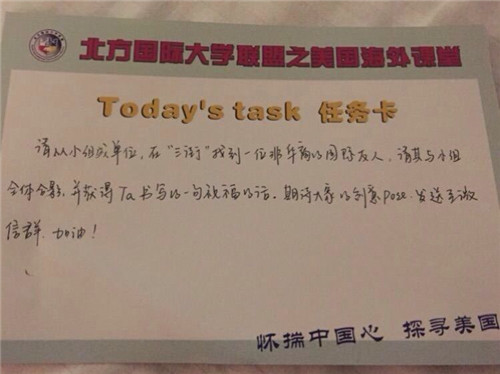 北方国际大学联盟之美国海外课堂
Today's task 任务卡
请以小组为单位，在“三街”找到一位非华裔的国际友人，请其与小组
全体合影，并获得Ta书写的一句祝福的话。期待大家的创意pose，发送至微
信群，加油！
怀揣中国心 探寻美国